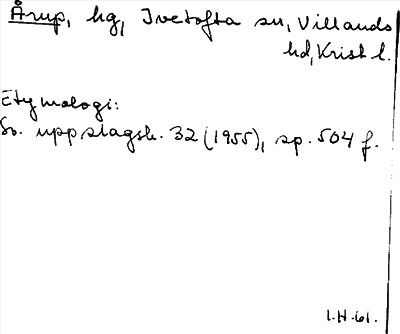 Årup, hg, Ivetofta sn, Villands
hd, Krist l.
Etymologi:
Sv. uppslagsb. 32 (1955), sp. 504 f.
I.H.61.